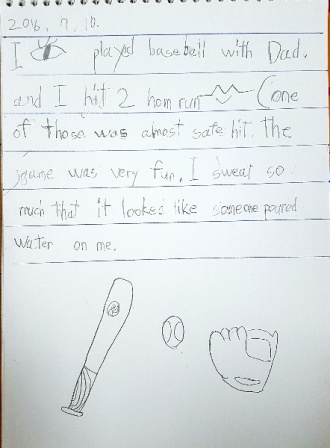 2016. 7. 10.
I played baseball with Dad.
and I hit 2 hom run (one
of those was almost safe hit. the
game was very fun. I sweat so
much that it looked like someone poured
water on me.